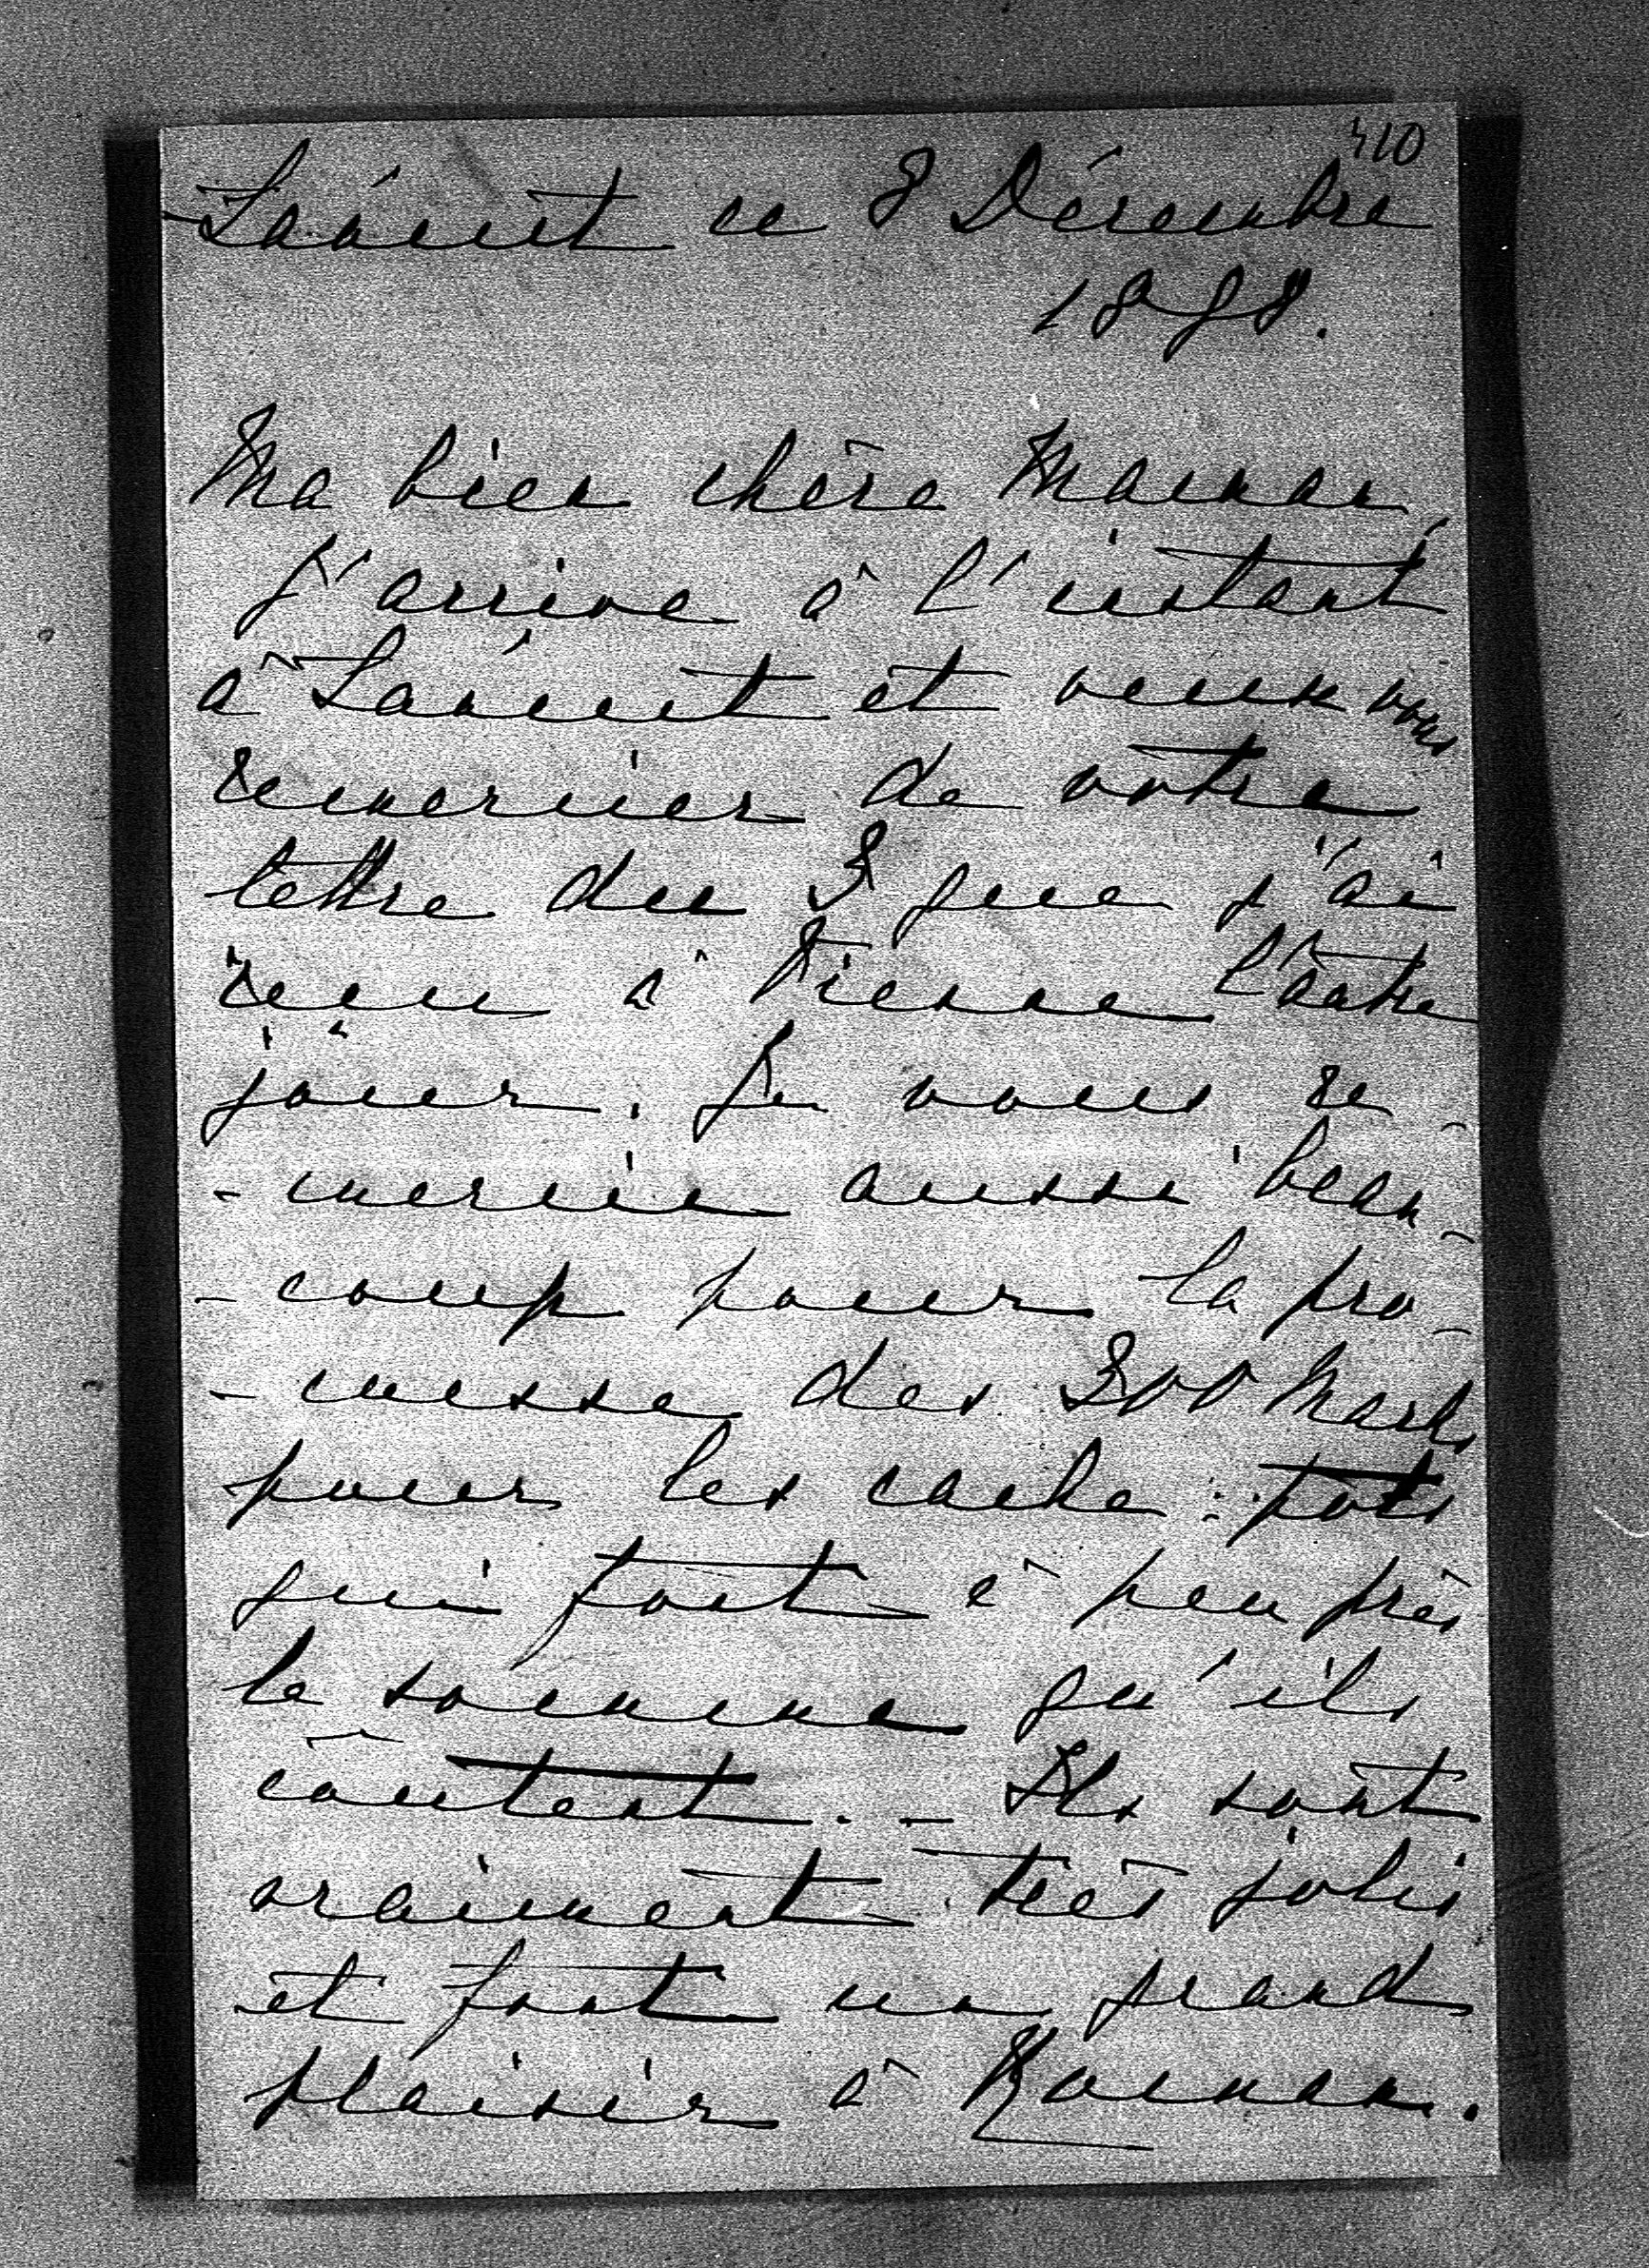 410
Láncut ce 8 Décembre
1898.
Ma bien chère Maman,
J'arrive à l'instant
à Láncut et veux vous
remercier de votre
lettre du 3 que j'ai
reçu à Vienne l'autre
jour. Je vous re-
-mercie aussi beau-
-coup pour la pro-
-messe des 300 Marks
pour les cache: pots
qui font à peu près
la somme qu'ils
coûtent. - Ils sont
vraiment très jolis
et font un grand
plaisir à Roman.